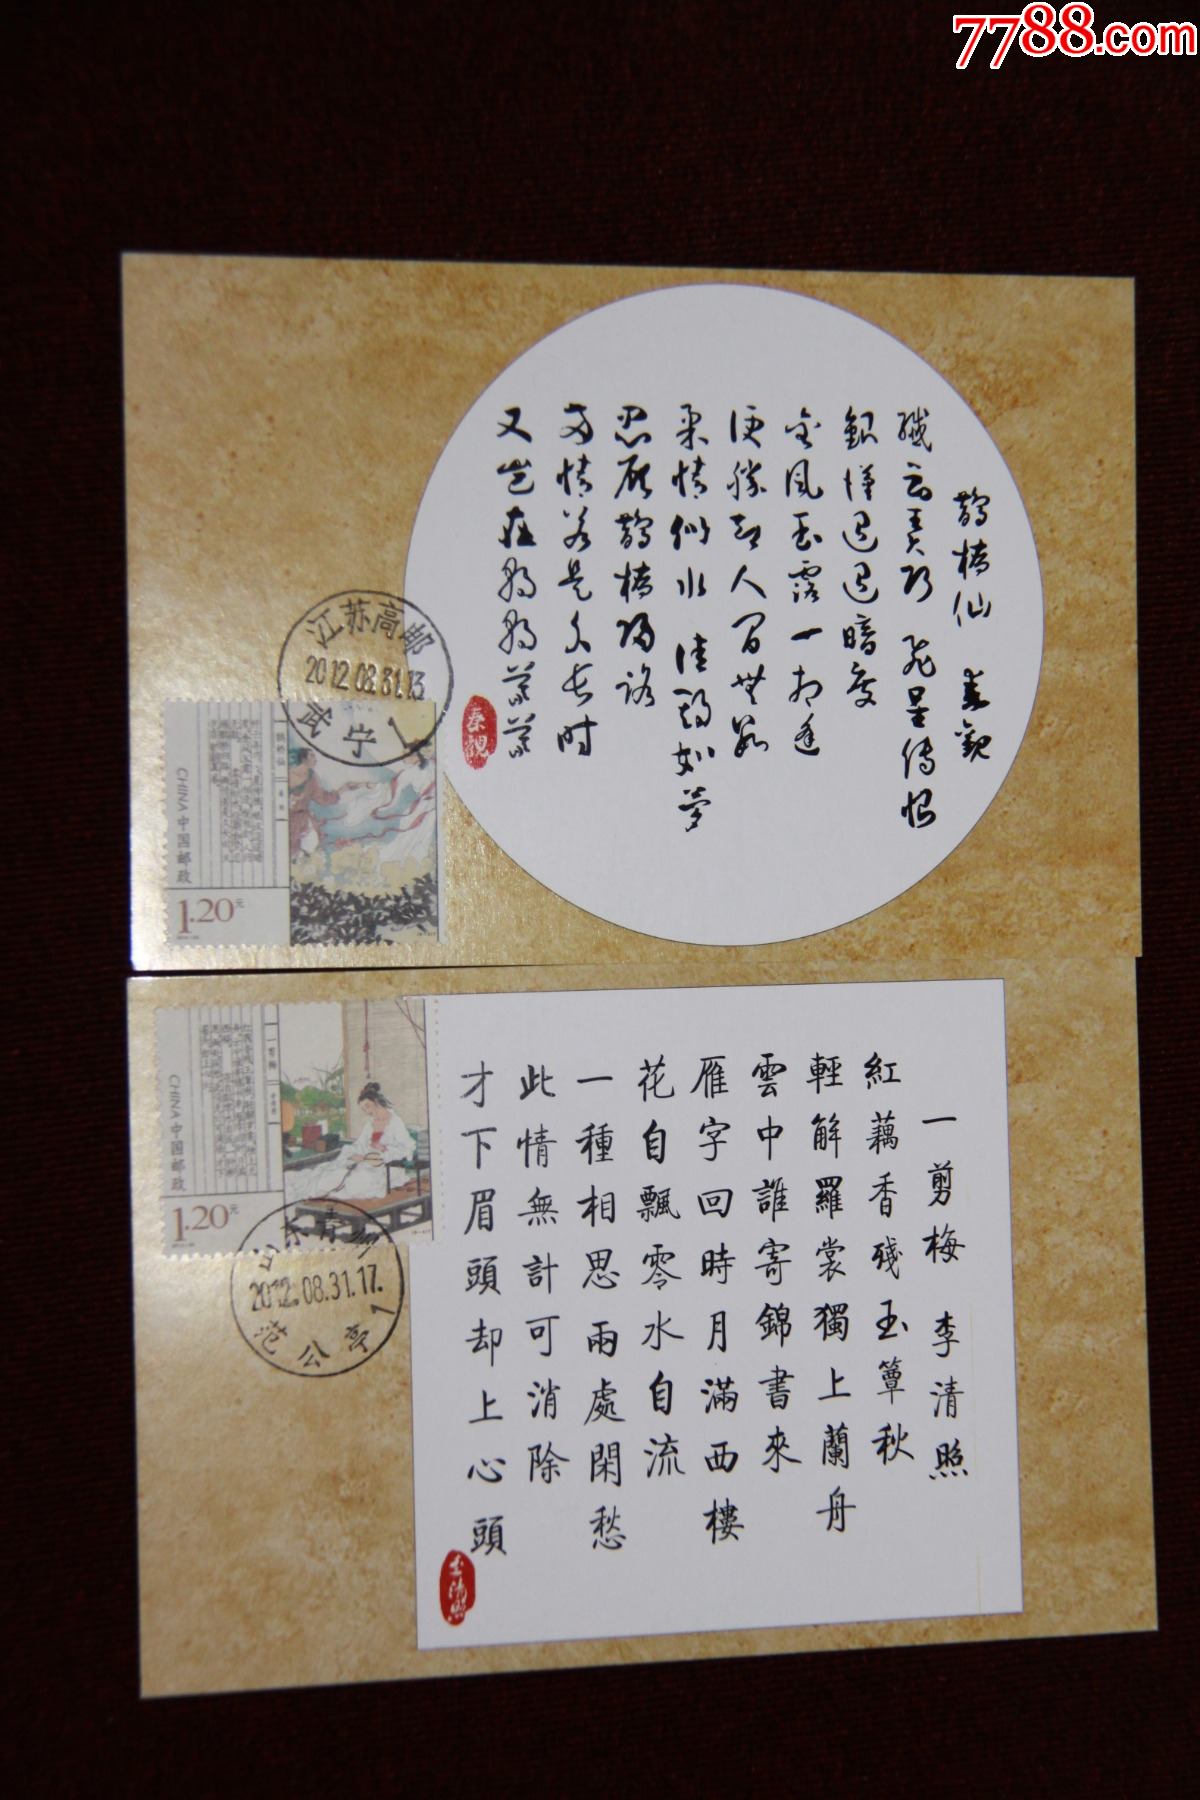 7788.com
鵲橋仙 秦觀
纖雲弄巧 飛星傳恨
銀漢迢迢暗度
金風玉露一相逢
便勝卻人間無數
柔情似水 佳期如夢
忍顧鵲橋歸路
兩情若是久長時
又豈在朝朝暮暮
秦觀
江苏高邮
2012.08.31.13
武宁
1
鹊桥仙
CHINA 中国邮政
1.20元
一剪梅 李清照
紅藕香殘玉簟秋
輕解羅裳獨上蘭舟
雲中誰寄錦書來
雁字回時月滿西樓
花自飄零水自流
一種相思兩處閑愁
此情無計可消除
才下眉頭却上心頭
李清照
一剪梅
CHINA 中国邮政
1.20元
山东青州
2012.08.31.17.
范公亭
1